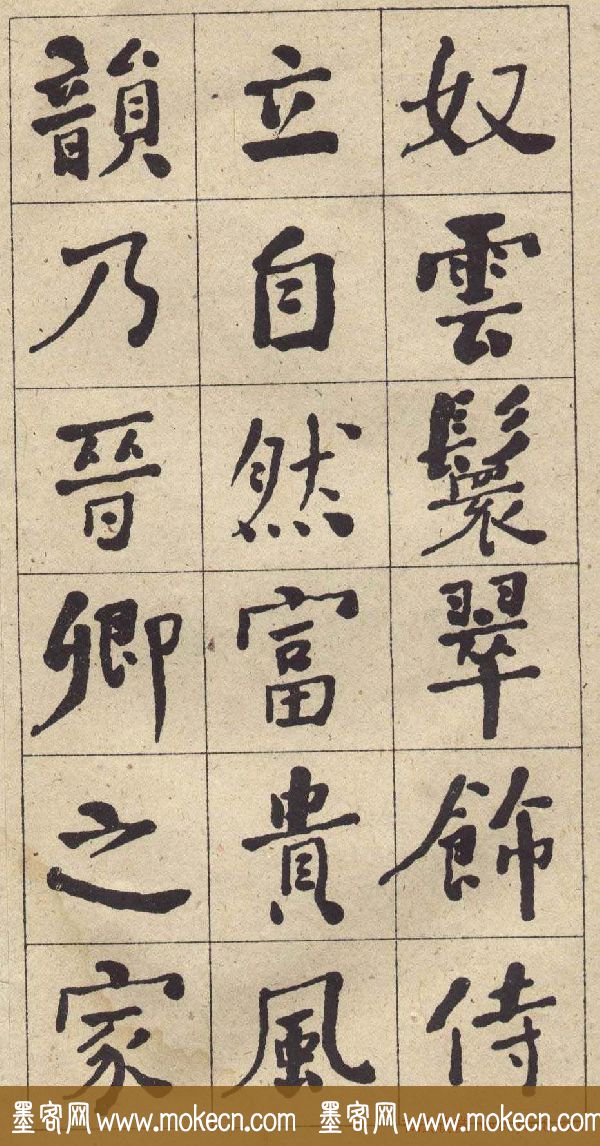 奴雲鬟翠飾侍
立自然富貴風
韻乃晉卿之家
墨客网 www.mokecn.com 墨客网 www.mokecn.com